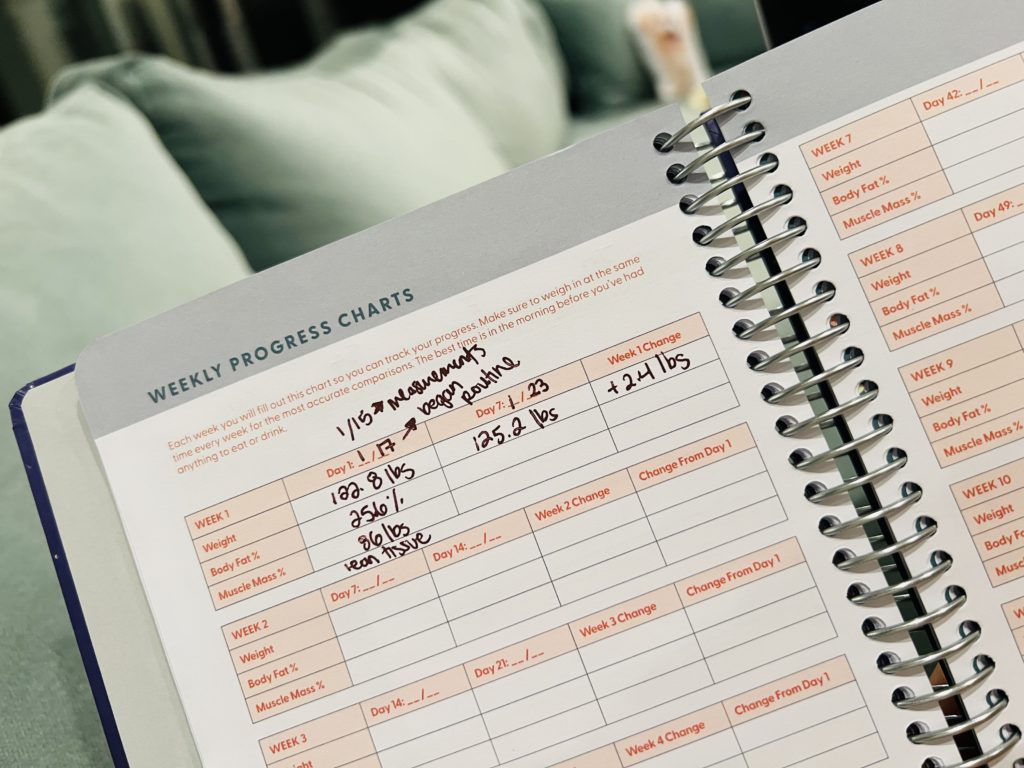 WEEKLY PROGRESS CHARTS
Each week you will fill out this chart so you can track your progress. Make sure to weigh in at the same
time every week for the most accurate comparisons. The best time is in the morning before you've had
anything to eat or drink.
1/15 → measurements
began routine
Day 1: 1/17 → Day 7: 1/23 Week 1 Change
WEEK 1
Weight 122.8 lbs 125.2 lbs +2.4 lbs
Body Fat % 25.6%
Muscle Mass % 86 lbs
lean tissue
WEEK 2 Day 7: __/__ Day 14: __/__ Week 2 Change Change From Day 1
Weight
Body Fat %
Muscle Mass %
WEEK 3 Day 14: __/__ Day 21: __/__ Week 3 Change Change From Day 1
Week 4 Change Change From Day 1
WEEK 7 Day 42: __/__
Weight
Body Fat %
Muscle Mass %
WEEK 8 Day 49:
Weight
Body Fat %
Muscle Mass %
WEEK 9
Weight
Body Fat %
Muscle Mass %
WEEK 10
Weight